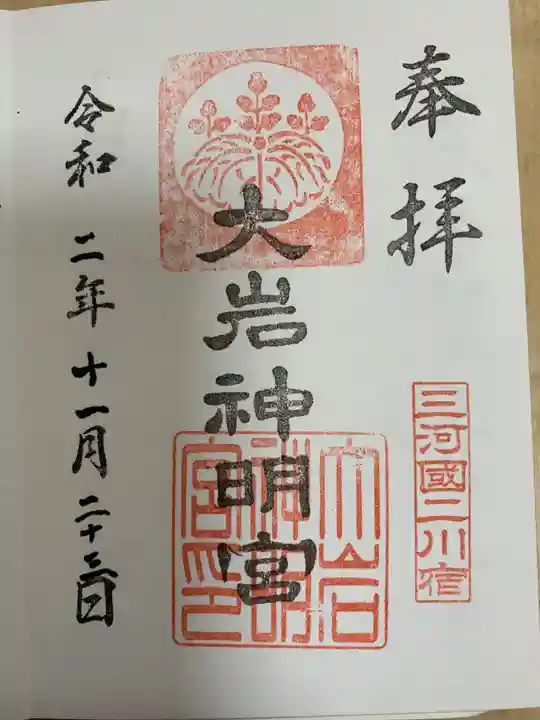 奉拝
三河國二川宿
大岩神明宮
大岩神明宮印
令和二年十一月二十三日